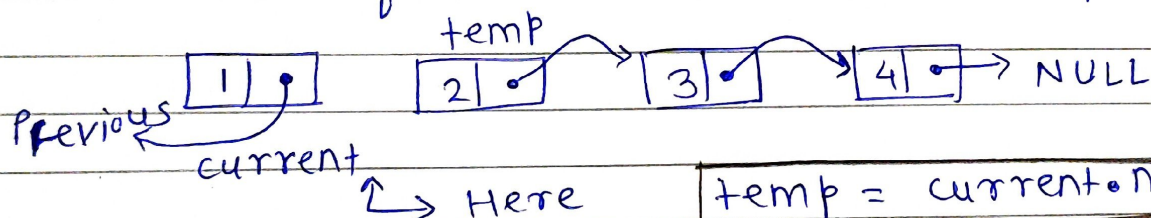 temp
1 2 3 4 NULL
Previous
current
Here temp = current.n